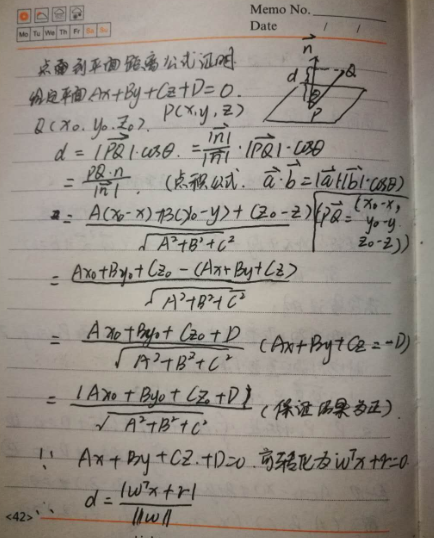 Memo No.
Mo Tu We Th Fr Sa Su
Date / /
点面到平面距离公式证明
给定平面Ax+By+Cz+D=0.
Q(x₀.y₀.z₀). P(x,y,z)
n d Q θ P
d = |PQ|·cosθ. = |n|/|n| · |PQ|·cosθ
= PQ·n/|n| . (点积公式. a·b=|a|·|b|·cosθ)
= A(x₀-x)+B(y₀-y)+C(z₀-z)/√A²+B²+C² (PQ = (x₀-x, y₀-y, z₀-z))
= Ax₀+By₀+Cz₀-(Ax+By+Cz)/√A²+B²+C²
= Ax₀+By₀+Cz₀+D/√A²+B²+C² (Ax+By+Cz=-D)
= |Ax₀+By₀+Cz₀+D|/√A²+B²+C² (保证结果为正).
∵ Ax+By+Cz.+D=0. 可转化为wᵀx+r=0
<42> ∴ d = |wᵀx+r|/||w||